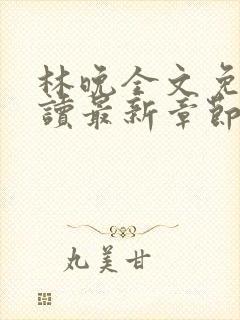 林晚全文免
讀最新章節
丸美甘